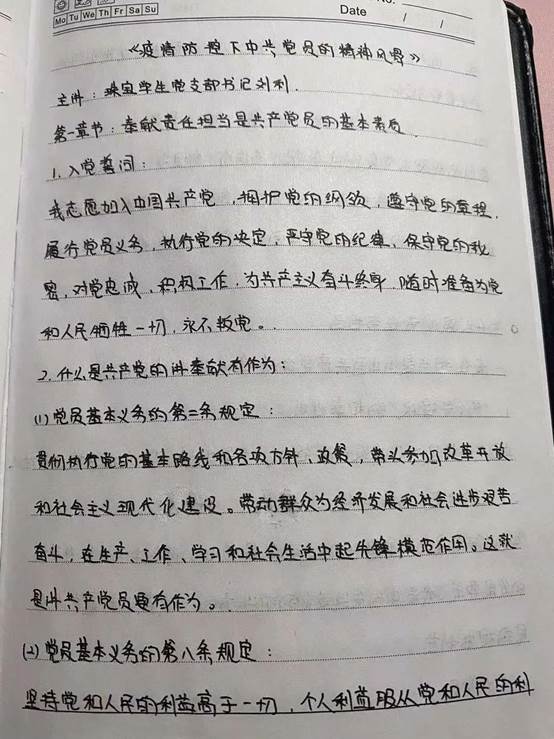 Mo Tu We Th Fr Sa Su
Date / /
《疫情防控下中共党员的精神风貌》
主讲：珠宝学生党支部书记刘利.
第一章节：奉献责任担当是共产党员的基本素质.
1. 入党誓词：
我志愿加入中国共产党，拥护党的纲领，遵守党的章程，
履行党员义务，执行党的决定，严守党的纪律，保守党的秘
密，对党忠诚，积极工作，为共产主义奋斗终身，随时准备为党
和人民牺牲一切，永不叛党。
2. 什么是共产党的讲奉献有作为：
(1) 党员基本义务的第二条规定：
贯彻执行党的基本路线和各项方针、政策，带头参加改革开放
和社会主义现代化建设。带动群众为经济发展和社会进步艰苦
奋斗，在生产、工作、学习和社会生活中起先锋模范作用。这就
是讲共产党员要有作为。
(2) 党员基本义务的第八条规定：
坚持党和人民的利益高于一切，个人利益服从党和人民的利